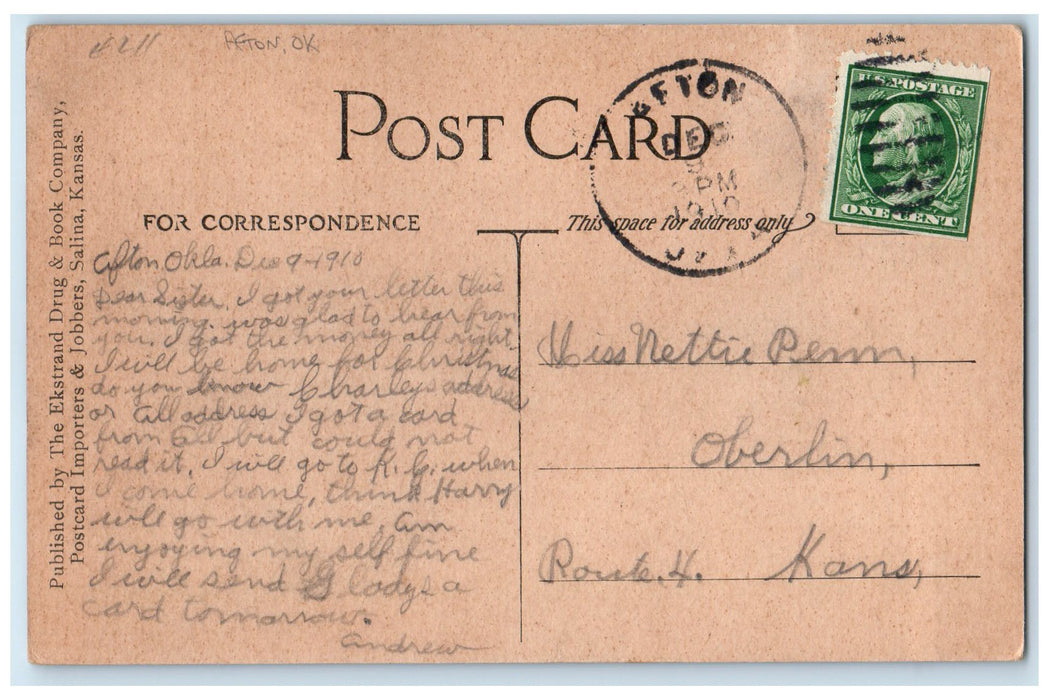 AFTON, OK
POST CARD
AFTON
DEC
PM
1910
U.S. POSTAGE
ONE CENT
FOR CORRESPONDENCE
This space for address only
Published by The Ekstrand Drug & Book Company,
Postcard Importers & Jobbers, Salina, Kansas.
Afton Okla. Dec 9-1910
Dear Sister, I got your letter this
morning. was glad to hear from
you. I got the money all right.
I will be home for Christmas
do you know Charleys address
or Ell address I got a card
from Ell but could not
read it. I will go to K. C. when
I come home, think Harry
will go with me, am
enjoying my self fine
I will send Gladys a
card tomorrow.
Andrew
Miss Nettie Penn,
Oberlin,
Route.4. Kans,